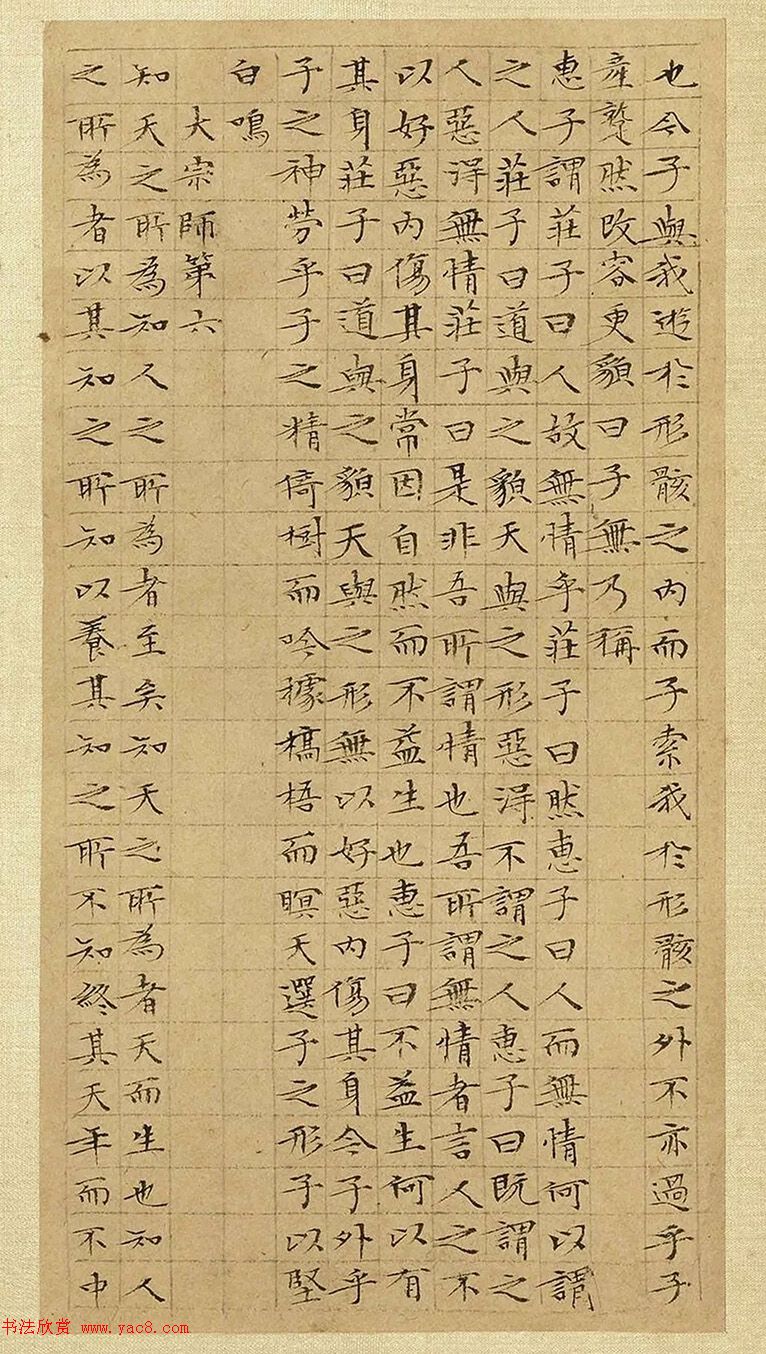 也今子與我遊於形骸之内而子索我於形骸之外不亦過乎子
產蹵然改容更貌曰子無乃稱
惠子謂莊子曰人故無情乎莊子曰然惠子曰人而無情何以謂
之人莊子曰道與之貌天與之形惡得不謂之人惠子曰既謂之
人惡得無情莊子曰是非吾所謂情也吾所謂無情者言人之不
以好惡内傷其身常因自然而不益生也惠子曰不益生何以有
其身莊子曰道與之貌天與之形無以好惡内傷其身今子外乎
子之神勞乎子之精倚樹而吟據槁梧而瞑天選子之形子以堅
白鳴
大宗師第六
知天之所為知人之所為者至矣知天之所為者天而生也知人
之所為者以其知之所知以養其知之所不知終其天年而不中
书法欣赏 www.yac8.com